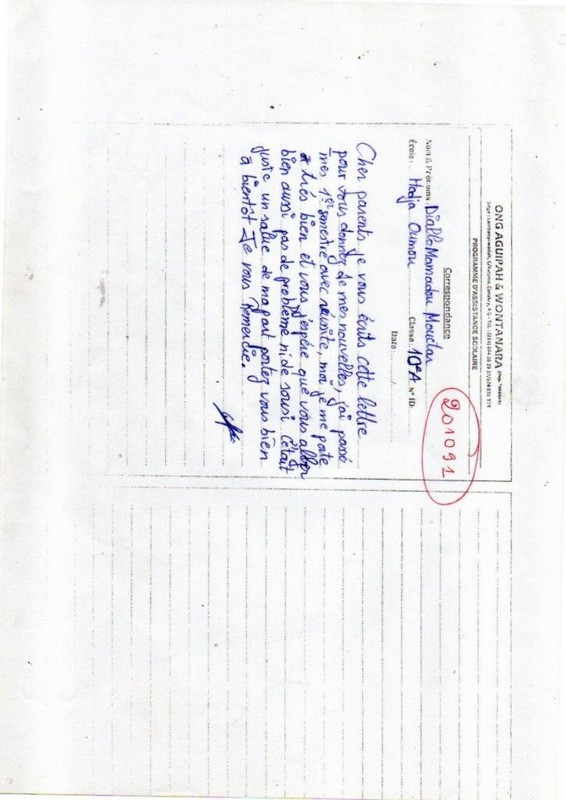 ONG AGUIPAH & WONTANARA
PROGRAMME D'ASSISTANCE SCOLAIRE
Correspondance
201091
Nom & Prénoms: Diallo Mamadou Mouctar
École: Hadja Oumou Classe: 10°A N° ID:
Date:
Cher parents je vous écrits cette lettre
pour vous donner de mes nouvelles, j'ai passé
mes 1er semestre avec reussite, moi je me porte
très bien et vous j'éspère que vous aller
bien aussi pas de problème ni de sousi c'était
juste un salue de ma part portez vous bien
à bientôt Je vous Remercie.